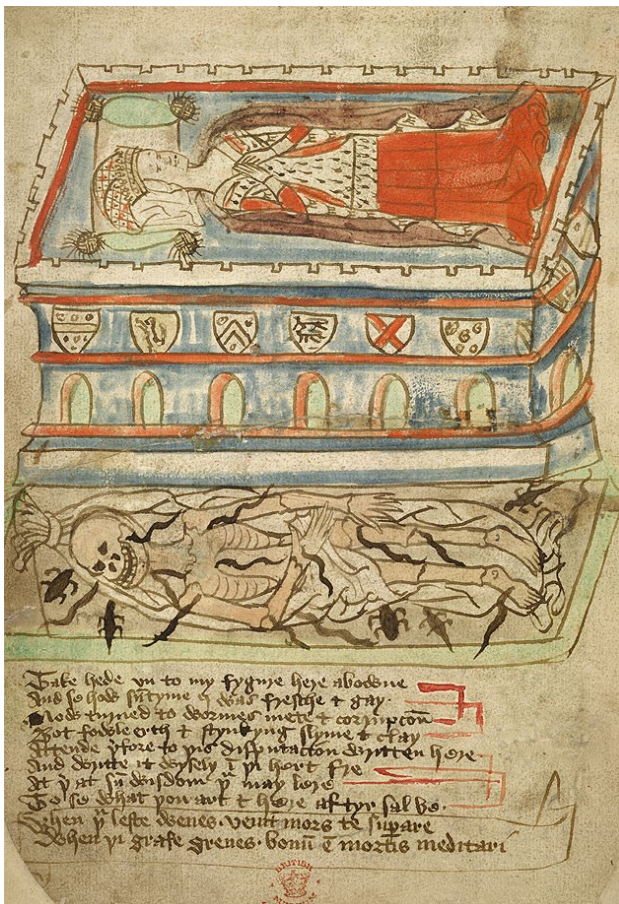 Take hede vn to my fygure here abowne
And se how sūtyme I was fresche & gay
Now turned to wormes mete & corrupcoñ
Bot fowle erth & stynkyng slyme & clay
Attende þfore to þis disputacion written here
And writte it wysely ī þi hert fre
At þ at sū wisdom þ may lere
To se what þou art & here aftyr sal be
When þ leste wenes · venit mors te supare
When þi grafe grenes · bonū ē mortis meditari
BRITISH
MUSEUM